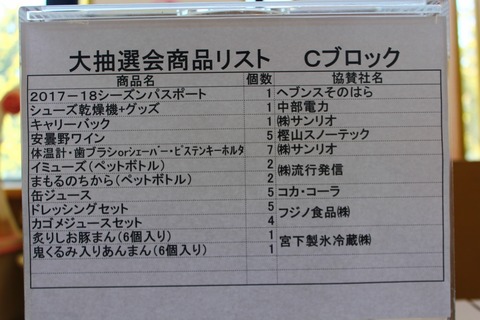 大抽選会商品リスト Cブロック
商品名 個数 協賛社名
2017-18シーズンパスポート 1 ヘブンスそのはら
シューズ乾燥機+グッズ 1 中部電力
キャリーバック 1 ㈱サンリオ
安曇野ワイン 5 樫山スノーテック
体温計・歯ブラシorシェーバー・ピステンキーホルダ 7 ㈱サンリオ
イミューズ(ペットボトル) 2 ㈱流行発信
まもるのちから(ペットボトル) 2
缶ジュース 5 コカ・コーラ
ドレッシングセット 5 フジノ食品㈱
カゴメジュースセット 4
炙りしお豚まん(6個入り) 1 宮下製氷冷蔵㈱
鬼くるみ入りあんまん(6個入り) 1